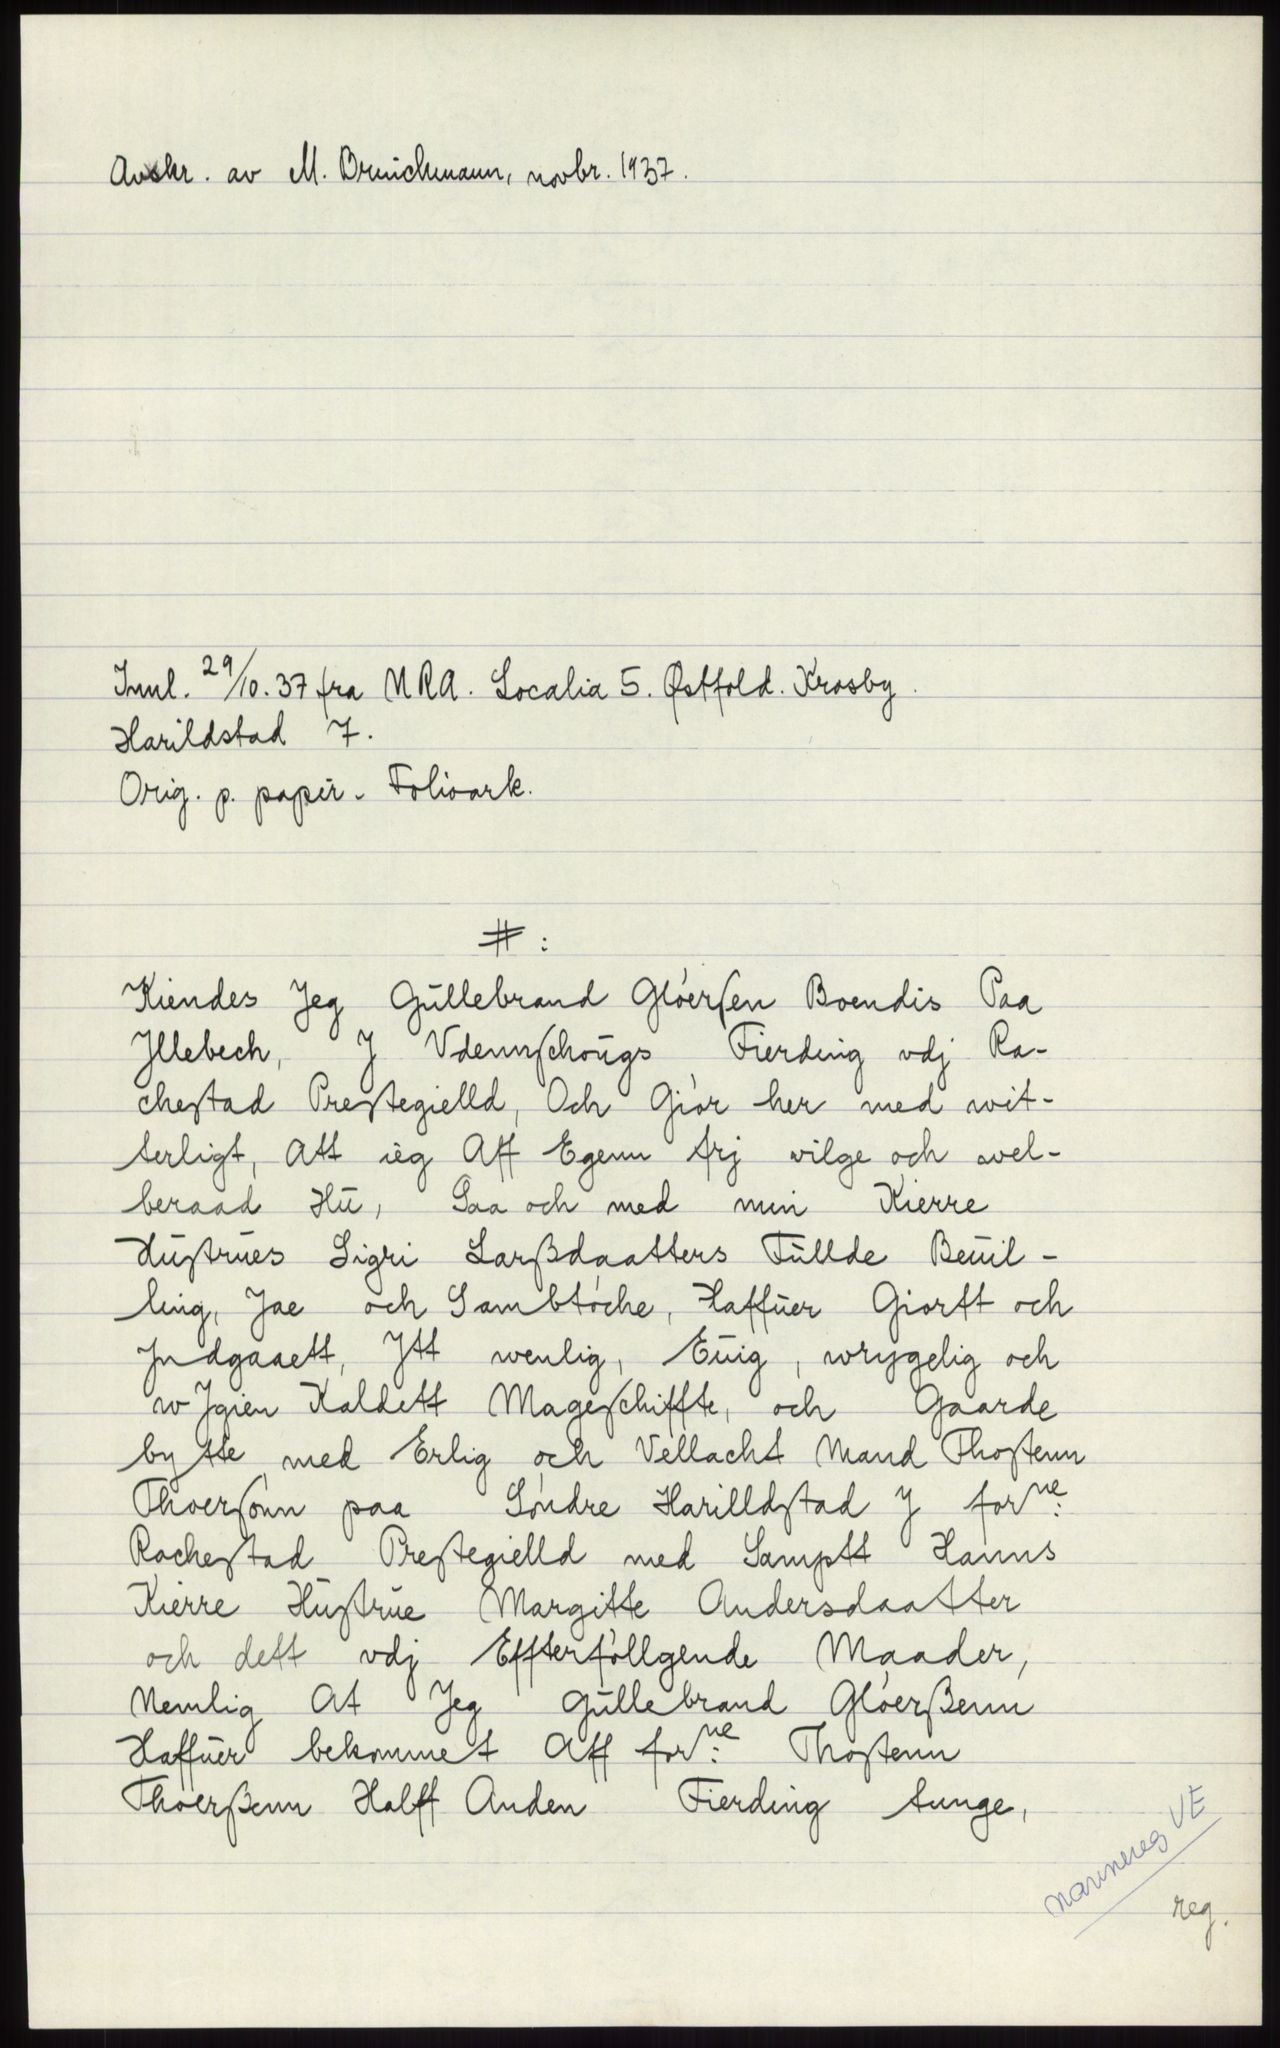 Avskr. av M. Brinchmann, novbr. 1937.
Innl. 29/10.37 fra NRA. Localia 5. Østfold. Krosby.
Harildstad 7.
Orig. p. papir. Folioark.
#:
Kiendes Jeg Gŭllebrand Glóerſen Boendis Paa
Jllebech, J Vdennſchoŭgs Fierding vdj Ra-
cheſtad Preſtegielld, Och Giór her med wit-
terligt, Att ieg Aff Egenn frj vilge och vel-
beraad Hŭ, Saa och med min Kierre
Hŭſtrŭes Sigri Larßdaatters Fŭllde Beŭil-
ling, Jae och Sambtóche, Haffŭer Giorft och
Jndgaaett, Jtt wenlig, Eŭig, wrygelig och
w Jgien Kaldett Mageſchiffte, och Gaarde
bytte, med Erlig och Vellacht Mand Thoſtenn
Thoerſónn paa Sóndre Harilldſtad J forne:
Racheſtad Preſtegielld med Samptt Hanns
Kierre Hŭſtrŭe Margitte Andersdaatter
och dett vdj Effterfóllgende Maader,
Nemlig At Jeg Gŭllebrand Glóerßenn
Haffŭer bekommet Aff forne: Thoſtenn
Thoerßenn Halff Anden Fierding tunge,
navnereg VE
reg.